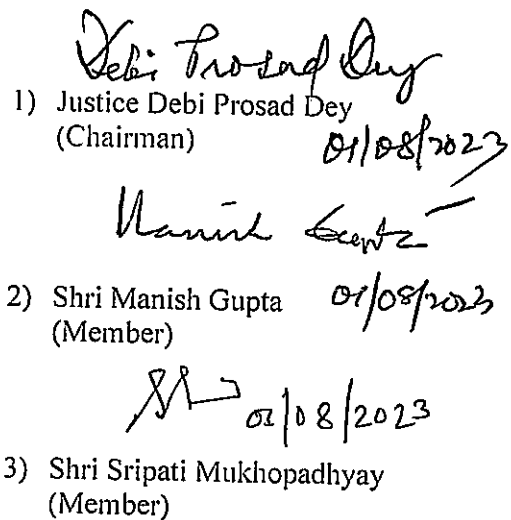 Debi Prosad Dey
1) Justice Debi Prosad Dey
(Chairman)
01/08/2023
Manish Gupta
2) Shri Manish Gupta
01/08/2023
(Member)
01/08/2023
3) Shri Sripati Mukhopadhyay
(Member)